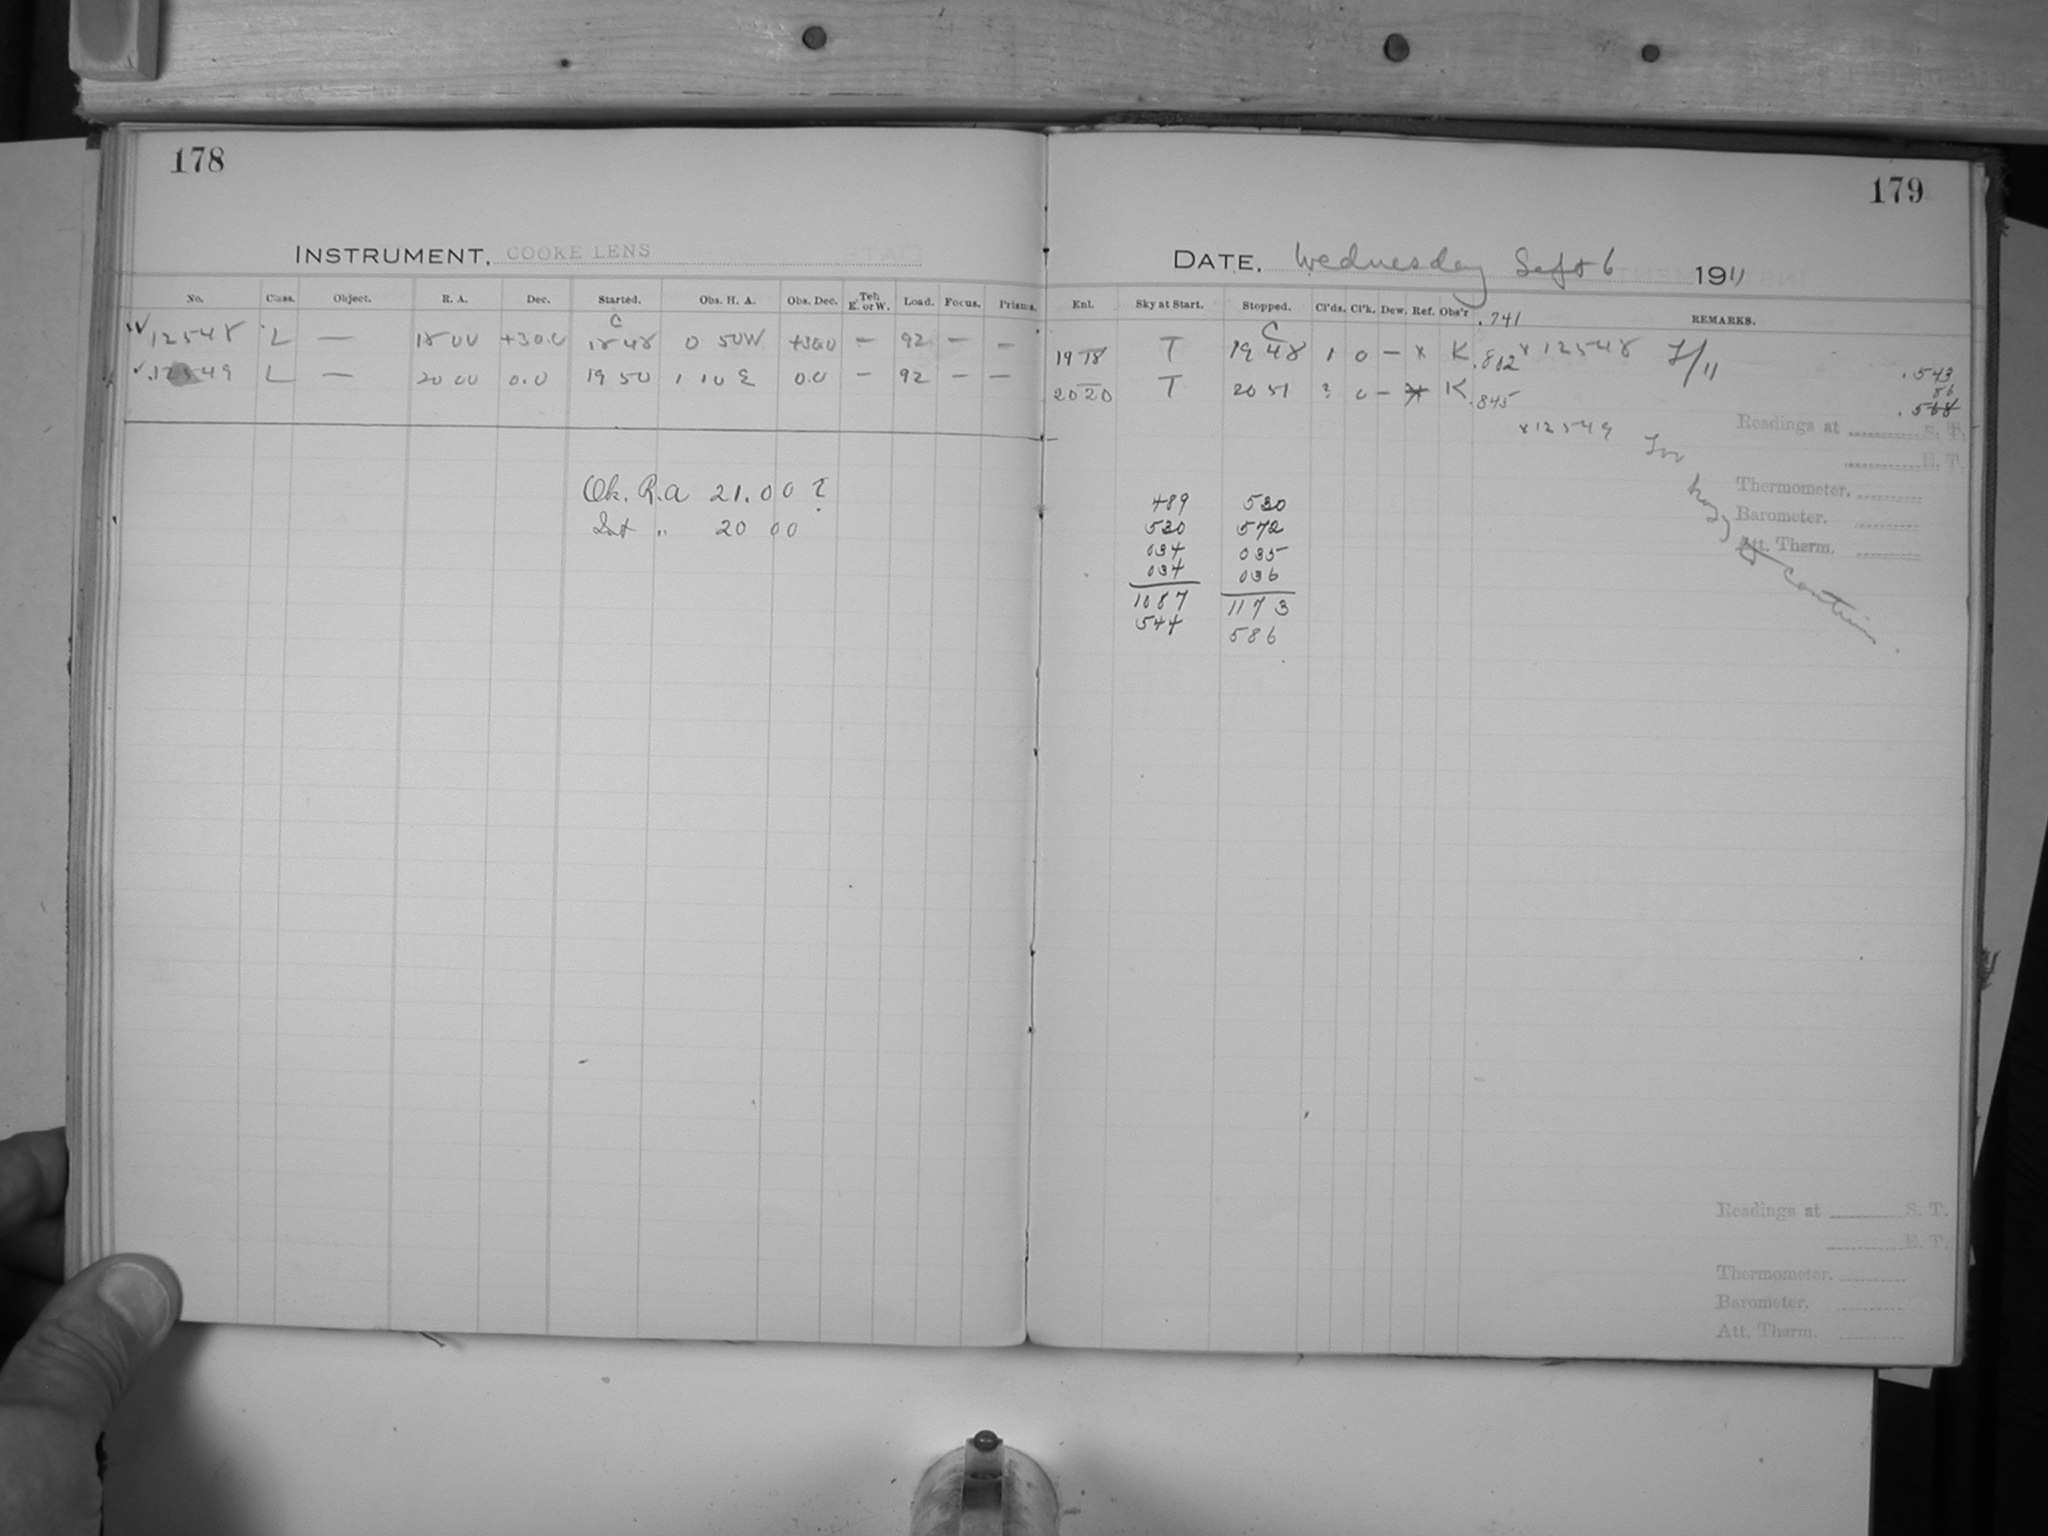 178
INSTRUMENT. COOKE LENS
No. Class. Object. R. A. Dec. Started. Obs. H. A. Obs. Dec. Tel. E. or W. Load. Focus. Prisms.
C
12548 L — 18 00 +30.0 18 48 0 50W +30.0 — 92 — —
12549 L — 20 00 0.0 19 50 1 10 E 0.0 — 92 — —
Ok. R.A 21.00?
Int " 20 00
179
DATE. Wednesday Sept 6 1911
Enl. Sky at Start. Stopped. Cl'ds. Cl'k. Dew. Ref. Obs'r REMARKS.
.741
C
19 18 T 19 48 1 0 — x K .802 x 12548 F/11
.543
20 20 T 20 51 ? 0 — x K .845
56
.568
x 12549 Too hazy to continue
Readings at S. T.
E. T.
Thermometer.
Barometer.
Att. Therm.
489 530
530 572
034 035
034 036
1087 1173
544 586
Readings at S. T.
E. T.
Thermometer.
Barometer.
Att. Therm.